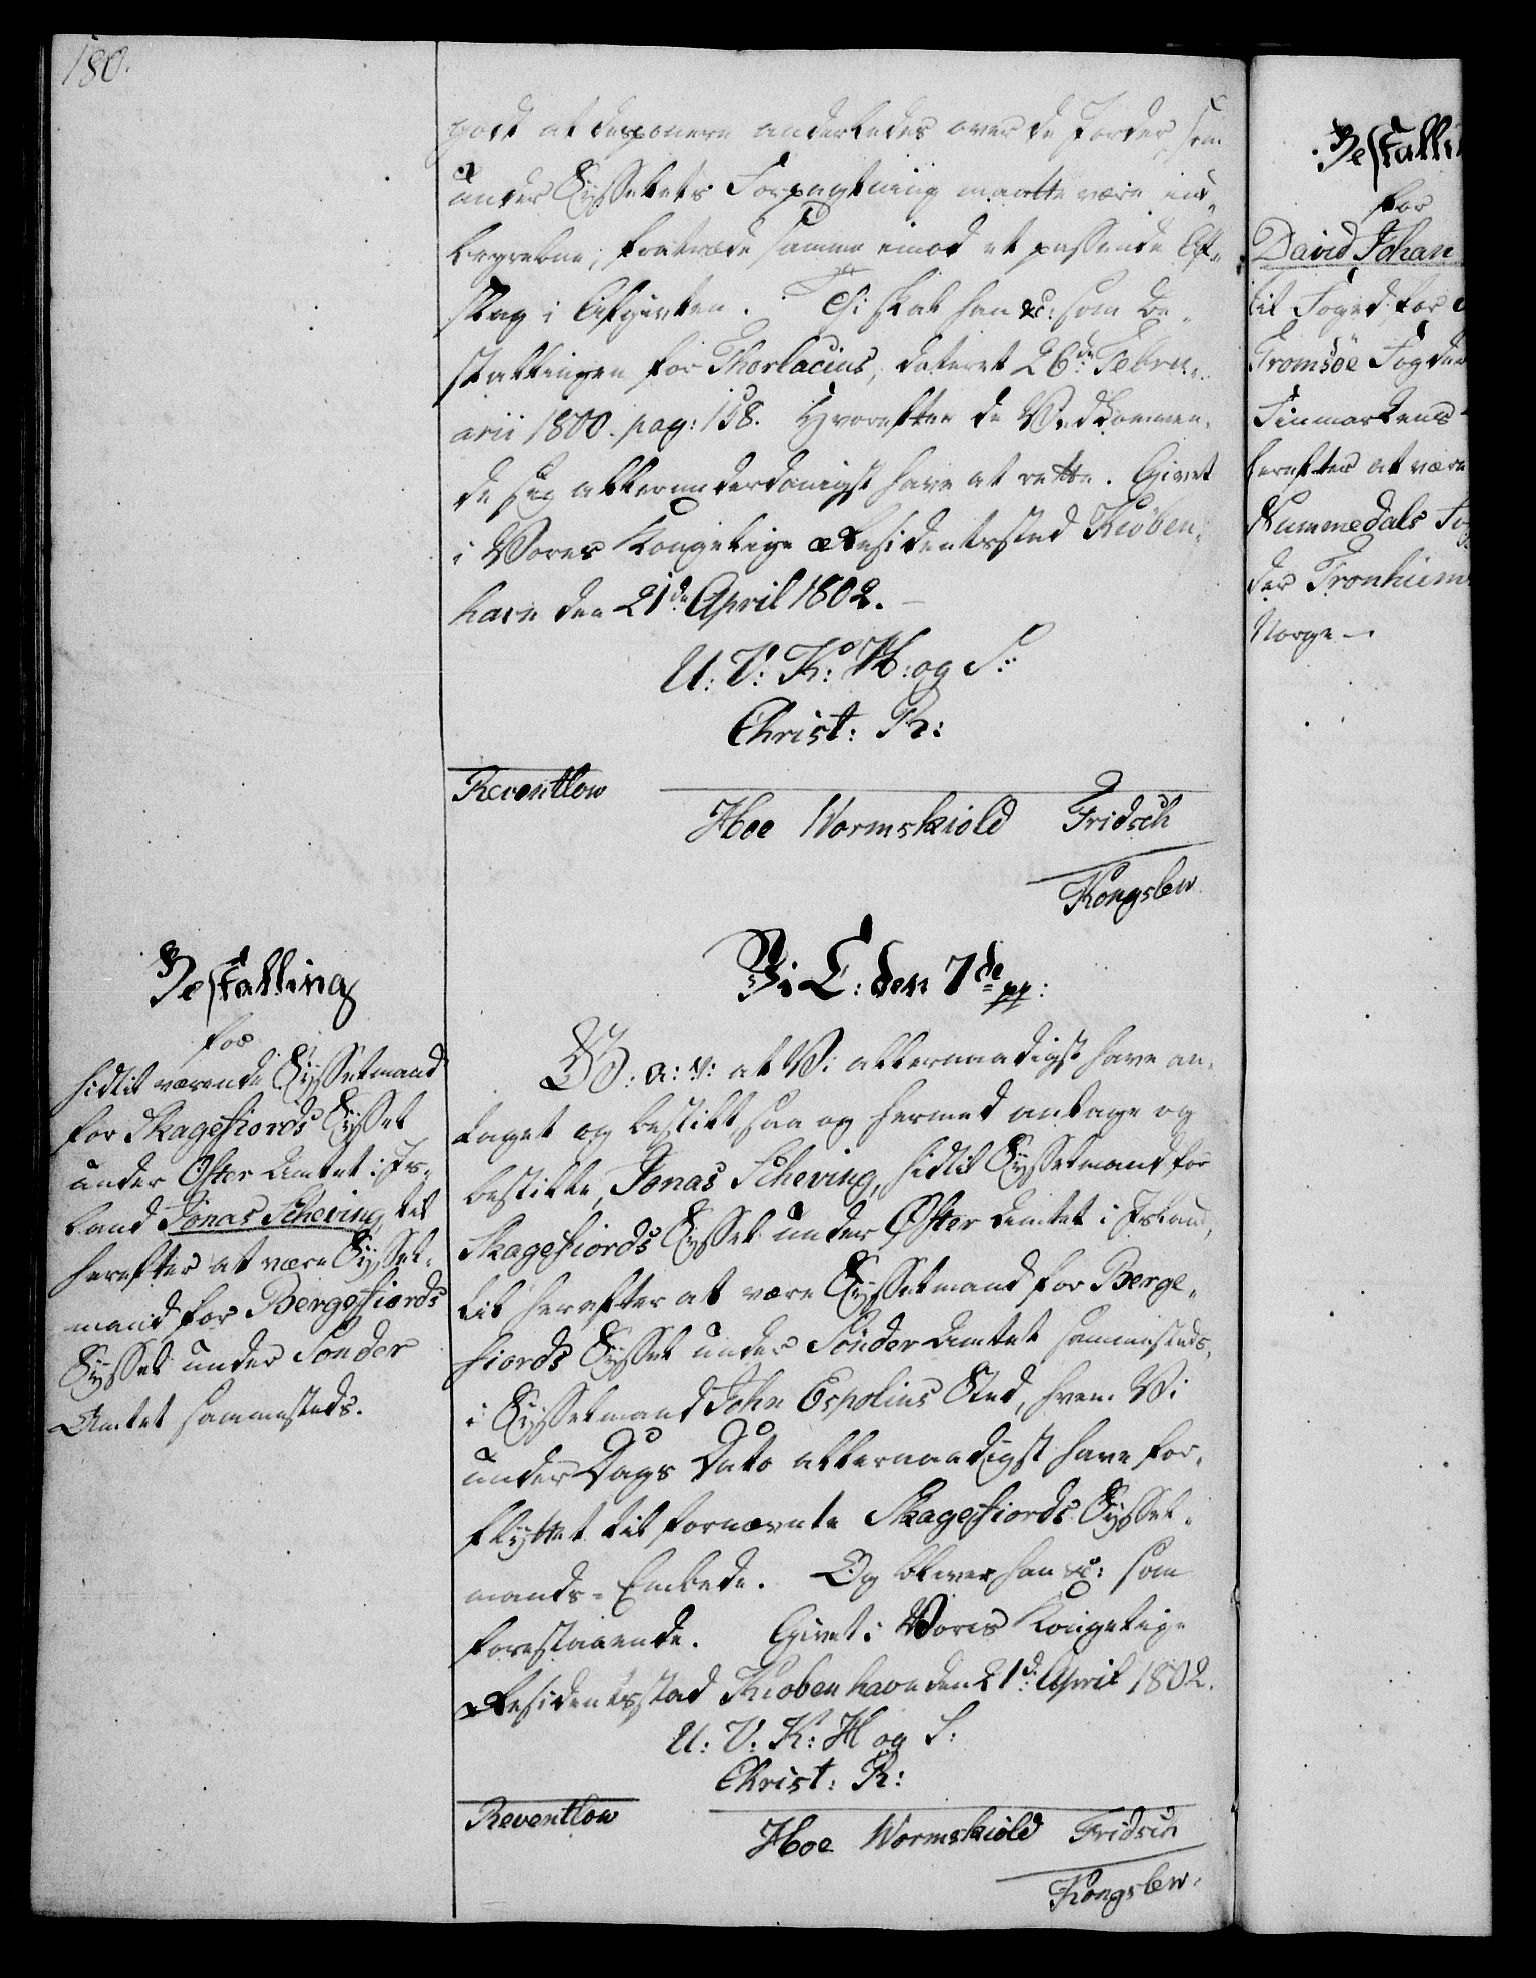 180.
godt at disponere anderledes over de Jorder, som
under Sysselets Forpagtning maatte være ind-
begrebne, fratræde samme imod et passende Af-
slag i Afgivten. Thi skal han &c: som Be-
stallingen for Thorlacius, dateret 26de Febru-
arii 1800. pag: 158. Hvorefter de Vedkommen-
de sig allerunderdanigst have at rette. Givet
i Vores Kongelige Residentsstad Kiöben-
havn den 21de April 1802.
U: V: K: H: og S:
Christ: R:
Reventlow
Hoe Wormskiold Fridsch
Kongslew
Bestalling
for
hidtil værende Sysselmand
for Skagefiords Syssel
under Øster Amtet i Is-
land Jonas Scheving, til
herefter at være Syssel-
mand for Bergefiords
Syssel under Sonder
Amtet sammesteds.
Vi C: den 7de pp:
G: a: V: at Vi allernaadigst have an-
taget og bestilt, saa og hermed antage og
bestille, Jonas Scheving, hidtil Sysselmand for
Skagefiords Syssel under Øster Amtet i Island,
til herefter at være Sysselmand for Berge-
fiords Syssel under Sönder Amtet sammesteds,
i Sysselmand John Espolins Sted, hvem Vi
under Dags Dato allernaadigst have for-
flyttet til fornævnte Skagefiords Syssel-
mands-Embede. Og bliver han &c: som
forestaaende. Givet i Vores Kongelige
Residentsstad Kiobenhavn den 21de April 1802.
U: V: K: H og S:
Christ: R:
Reventlow
Hoe Wormskiöld Fridsch
Kongslew.
Bestalli
for
David Johan
til Foged for
Tromsöe Fogder
Finmarkens
herefter at være
Nummedals Fog
der Tronhiem
Norge